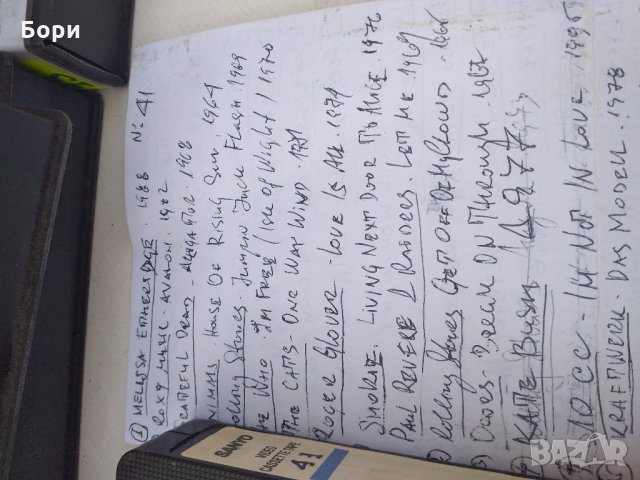 Бори
№ 41
1) MELLISSA ETHERIDGE . 1988
ROXY MUSIC . AVALON . 1982
GRATEFUL DEAD - ALLIGATOR . 1968
ANIMALS HOUSE OF RISING SUN . 1964
Rolling Stones . Jumpin Jack Flash . 1969
THE WHO I'M FREE (Isle of Wight) 1970
THE CATS - ONE WAY WIND . 1971
ROGER Glover - Love Is All . 1974
SMOKIE . LIVING NEXT DOOR TO ALICE . 1976
Paul REVERE & RAIDERS . LET ME . 1969
Rolling Stones GET OFF OF My Clowd . 1965
DOORS - BREAK ON THROUGH . 1967
KATE BUSH
10 CC - I'M NOT IN LOVE . 1995
KRAFTWERK . DAS MODELL . 1978
SANYO
VIDEO
CASSETTE TAPE
41
BAZAR